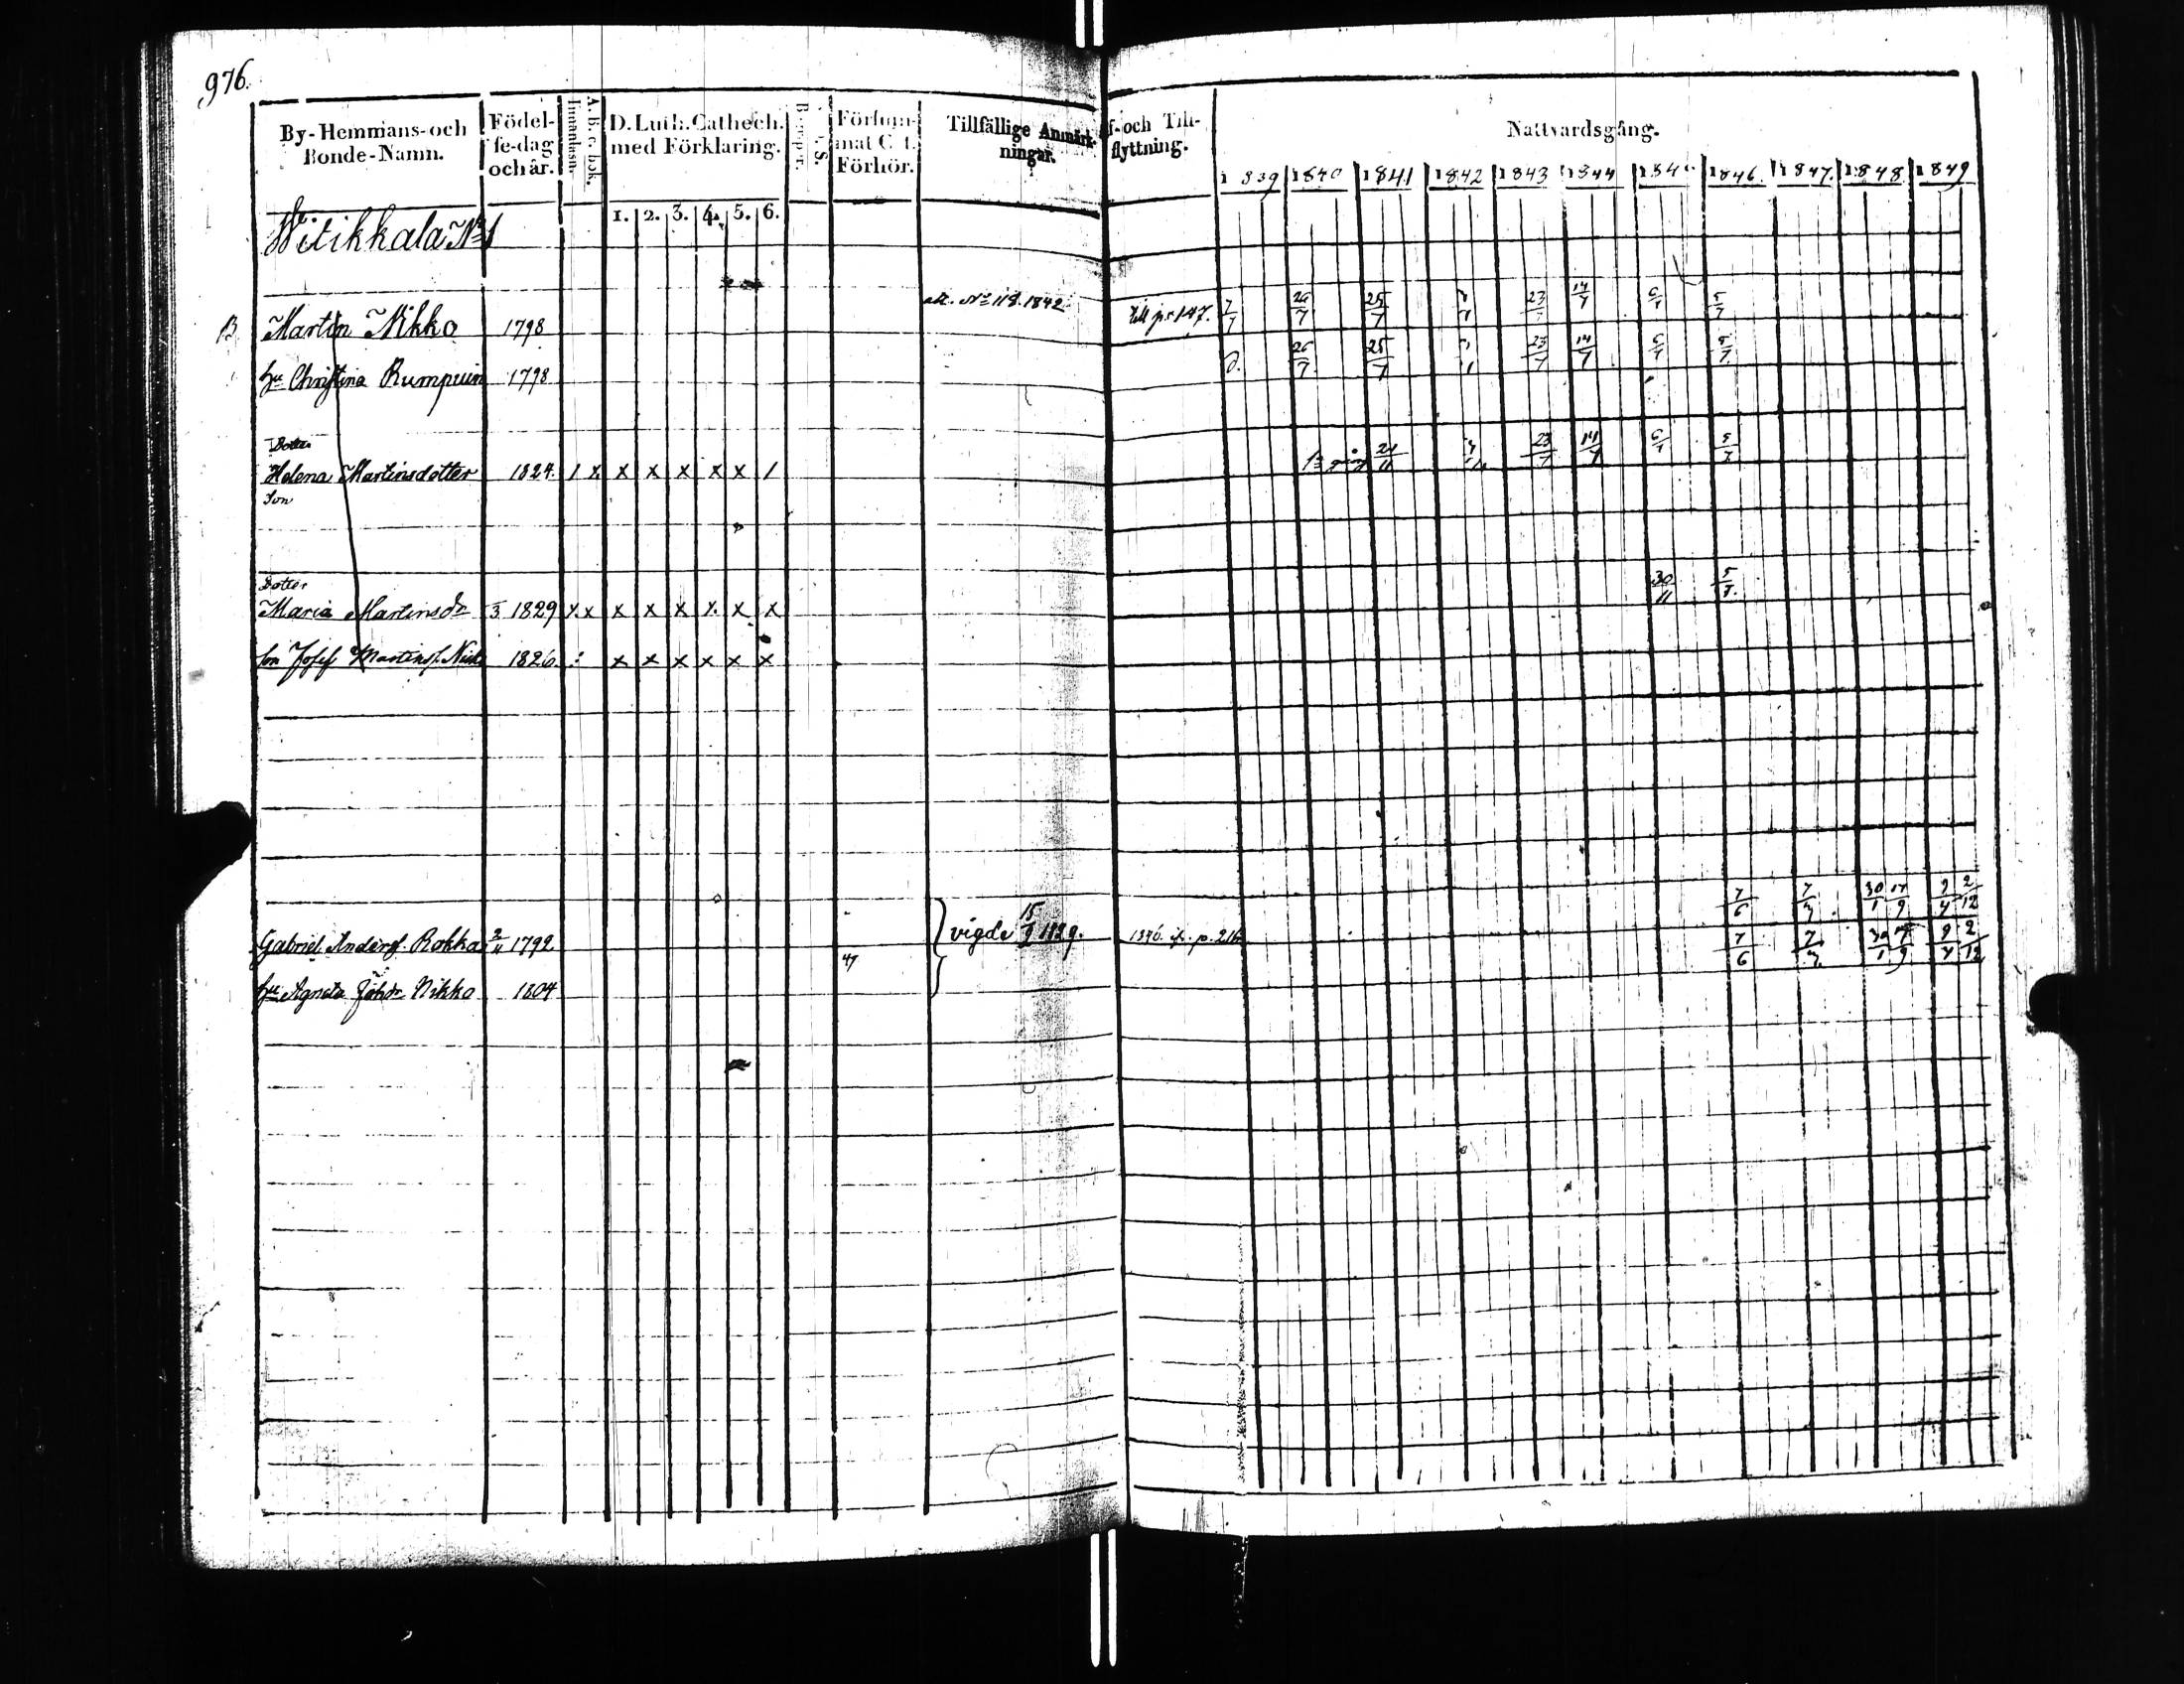 976.
By-Hemmans-och Bonde-Namn.
Födel-se-dag och år.
Innanläsn.
A. B. c. bok.
D. Luth. Cathech. med Förklaring.
1. 2. 3. 4. 5. 6.
Försum-mat C t. Förhör.
Tillfällige Anmärk-ningar.
f- och Till-flyttning.
Nattvardsgång.
1839 1840 1841 1842 1843 1844 184 1846. 1847. 1848. 1849
Witikkala No 1
B. Martin Nikko 1798 att. No 118. 1842 till p. 147. 7/7 26/7 25/7 23/7 14/7 6/7 5/7
hu Christina Rumpuin 1798 D. 26/7 25/7 23/7 14/7 6/7 5/7
Dotter
Helena Martinsdotter 1824. 1 x x x x x x 1 1a gång 21/11 23/7 14/7 6/7 5/7
Son
Dotter
Maria Martinsdr 3 1829 x. x x x x x. x x 30/11 5/7.
son Josef Martinss. Nikko 1826 : x x x x x x
Gabriel Anderss. Rokka 2/11 1792 vigde 15/ 1829. 1846. if. p. 216 7/6 7/7 30/1 17/9 9/4 2/12
47
hu Agneta Johdr Nikko 1804 7/6 7/7 30/1 17/9 9/4 2/12